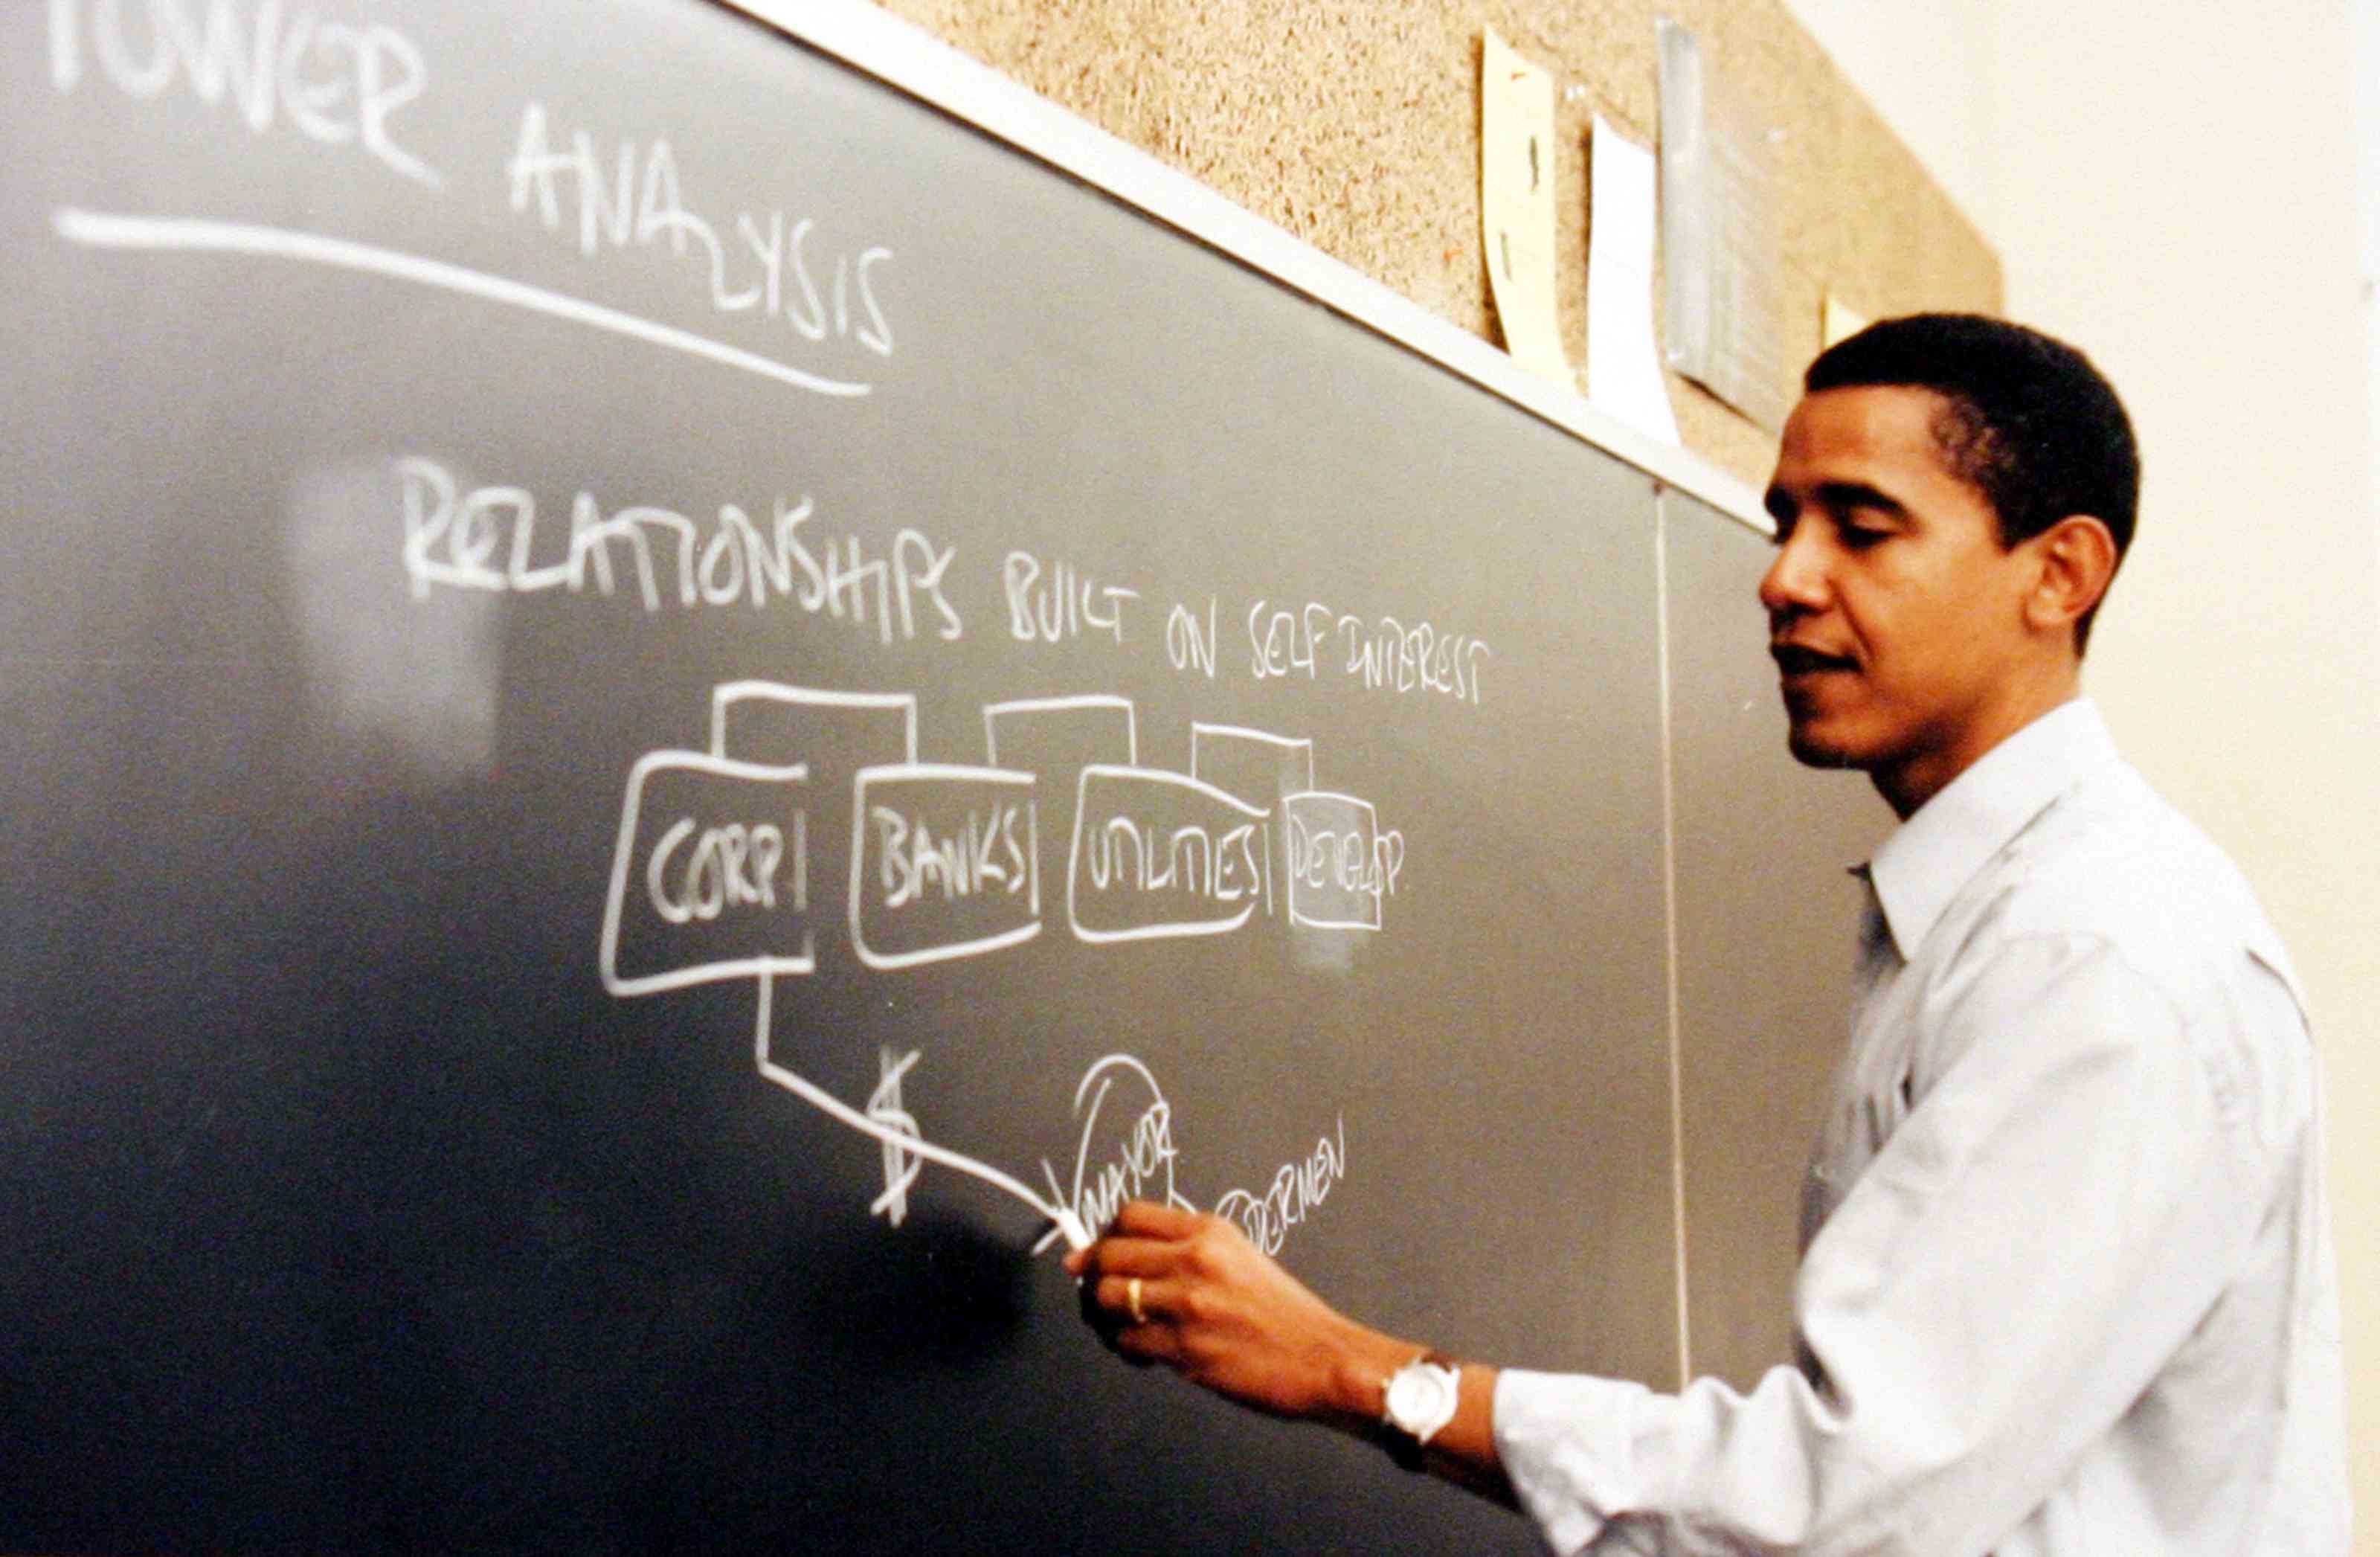 POWER ANALYSIS
RELATIONSHIPS BUILT ON SELF INTEREST
CORP BANKS UTILITIES DEVELOP.
$
MAYOR
ALDERMEN